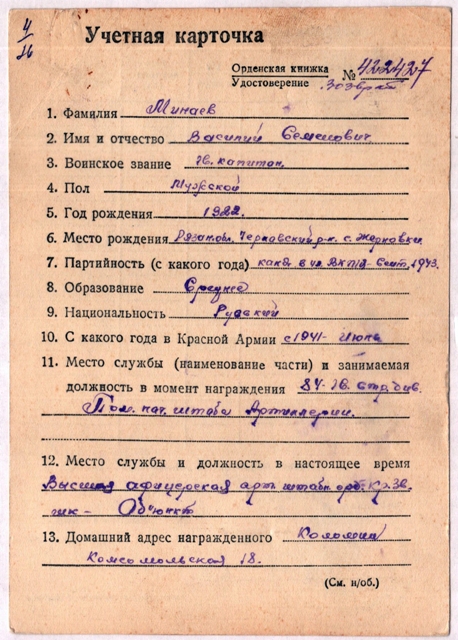 4/26
Учетная карточка
Орденская книжка
Удостоверение № 422427
1. Фамилия Минаев
2. Имя и отчество Василий Семенович
3. Воинское звание гв. капитан.
4. Пол Мужской
5. Год рождения 1922.
6. Место рождения Рязанск. Чернавский р-н с. Жерновки
7. Партийность (с какого года) канд. в чл. ВКП/б- Сент. 1943.
8. Образование Среднее
9. Национальность Русский
10. С какого года в Красной Армии с 1941- Июнь
11. Место службы (наименование части) и занимаемая
должность в момент награждения 84- гв. стр. див.
Пом. нач. штаба Артиллерии.
12. Место службы и должность в настоящее время
Высшая афицерская арт. штабн. орд. Кр. Зв.
шк- Об'юнкт
13. Домашний адрес награжденного Коломна
Комсомольская 18.
(См. н/об.)